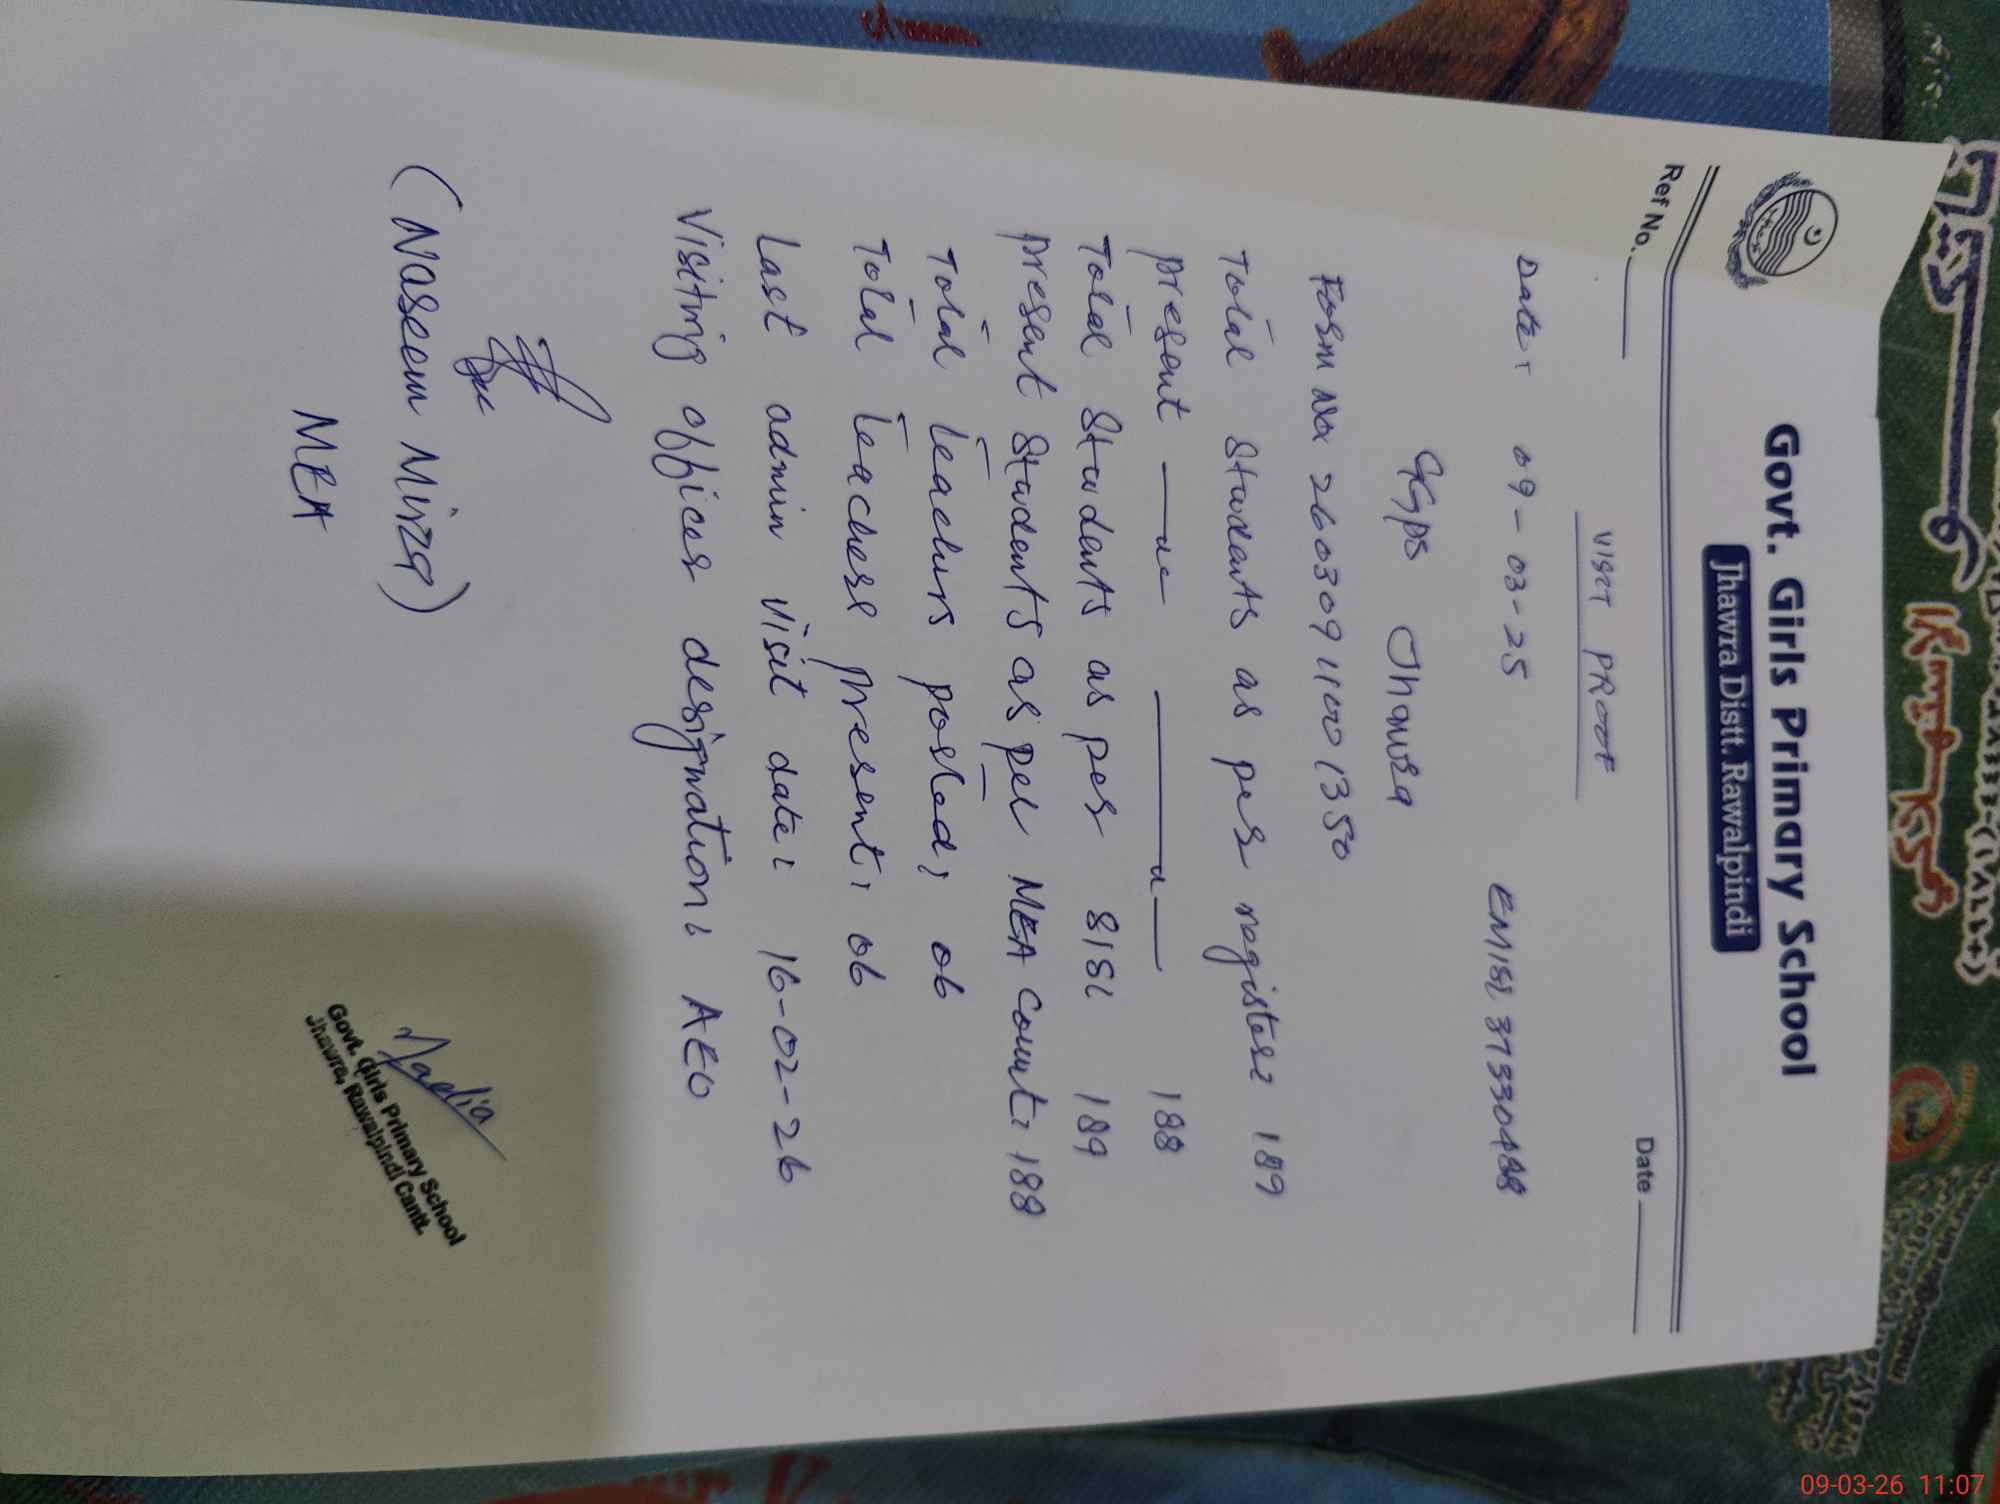 Govt. Girls Primary School
Jhawra Distt. Rawalpindi
Ref No. Date
VISIT PROOF
Date: 09-03-25 EMIS: 37330488
GGPS Jhawra
Form No: 26030911001350
Total Students as per register: 189
present —"— —"— 188
Total Students as per SIS: 189
present Students as per MEA Count: 188
Total Teachers posted: 06
Total Teachers present: 06
Last admin visit date: 16-02-26
Visiting officer designation: AEO
(Naseem Mirza)
MEA
Govt. Girls Primary School
Jhawra, Rawalpindi Cantt.
09-03-26 11:07